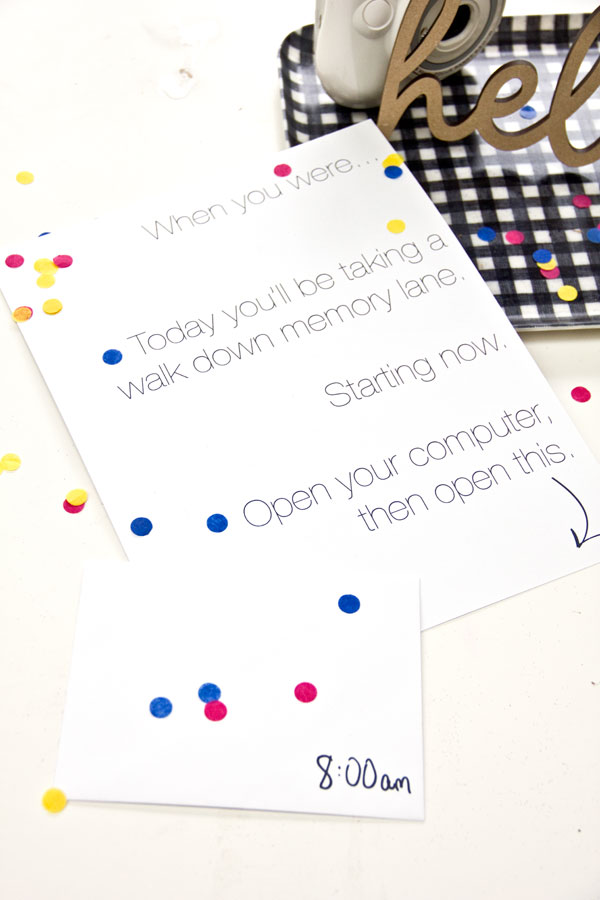 hel
When you were...
Today you'll be taking a
walk down memory lane.
Starting now.
Open your computer,
then open this.
8:00am